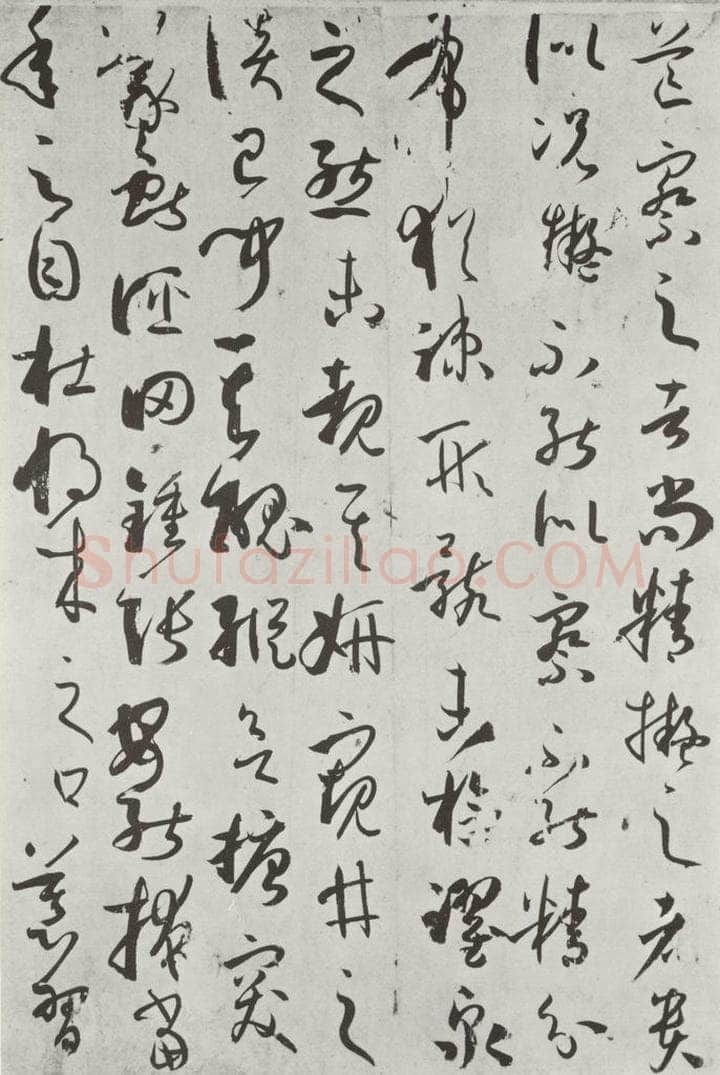 察之者尚精擬之者貴
似況擬不能似察不能精分
布猶疎形骸未檢躍泉
之態未覩其妍窺井之
談已聞其醜縱欲搪突
羲獻誣罔鍾張安能掩當
年之目杜將來之口慕習
Shufaziliao.COM